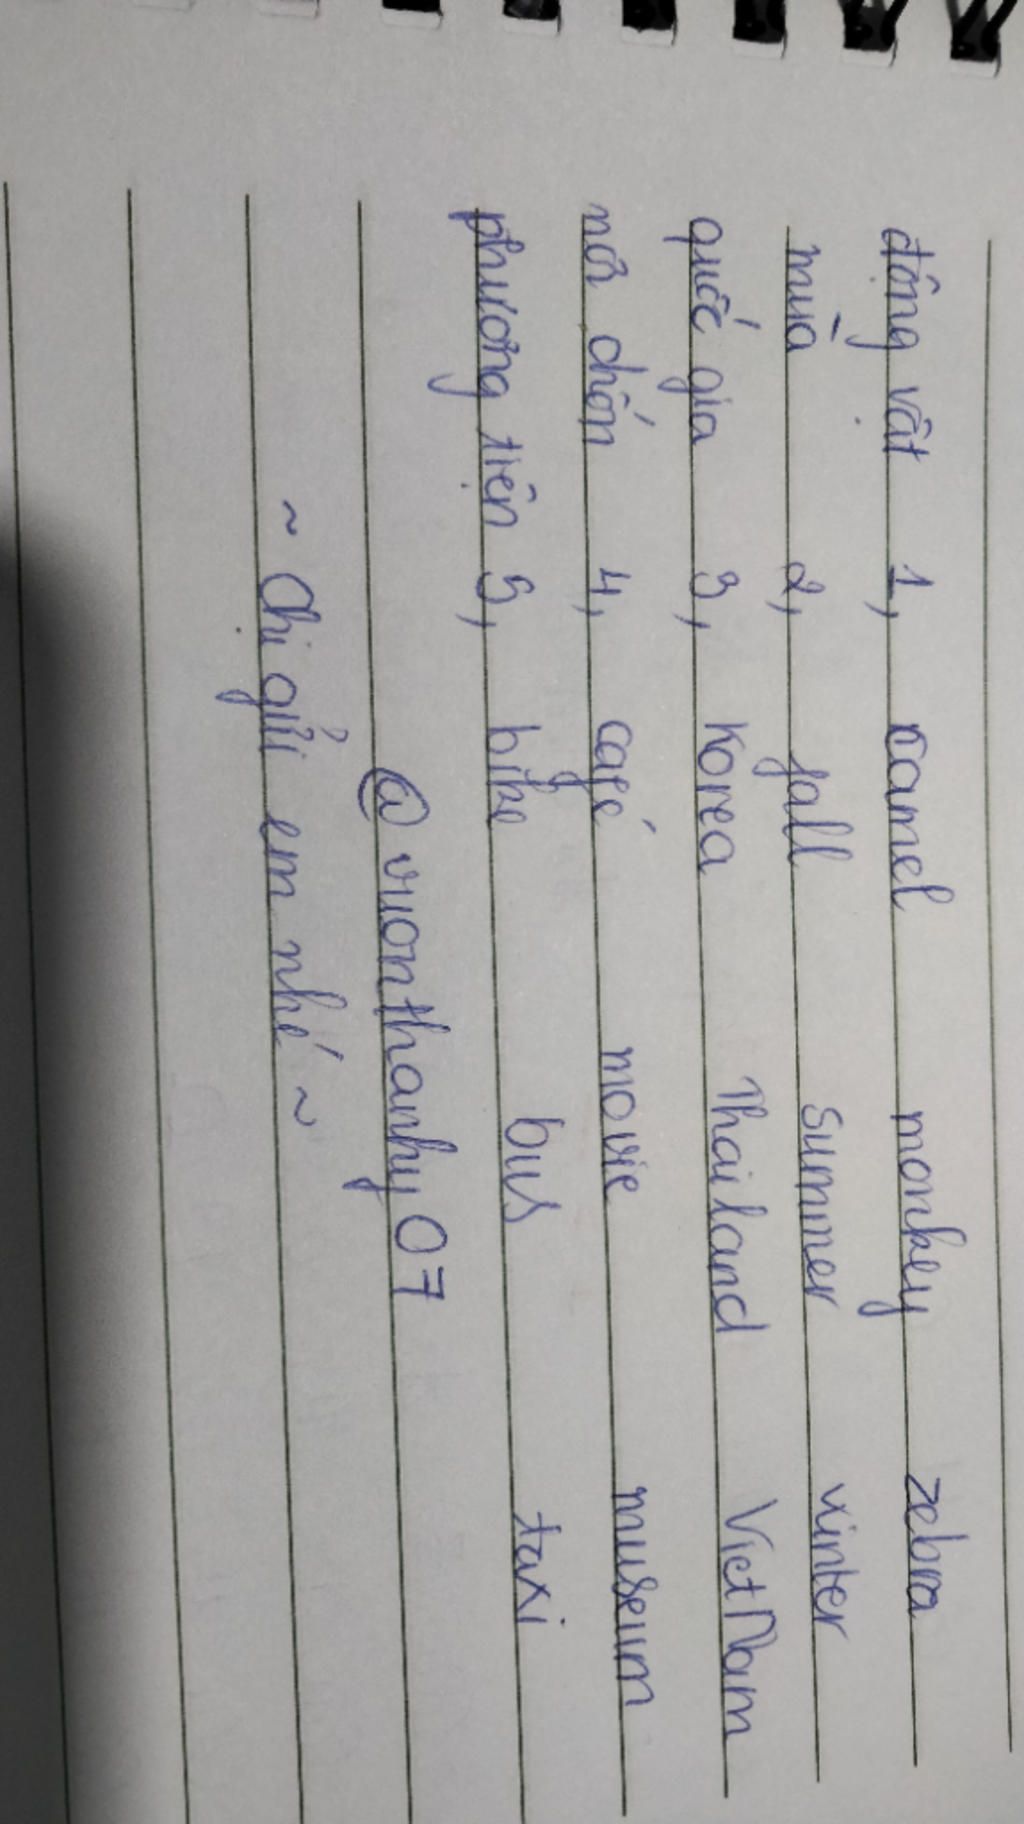 động vật 1, camel monkey zebra
mùa 2, fall summer winter
quốc gia 3, Korea Thailand Viet Nam
nơi chốn 4, café movie museum
phương tiện 5, bike bus taxi
@vuonthanhy07
~ Chị gửi em nhé ~